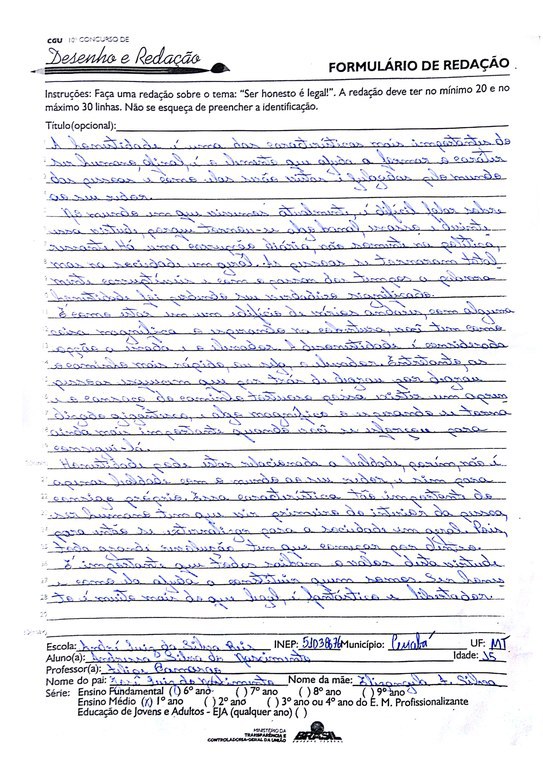 CGU 10º CONCURSO DE
Desenho e Redação
FORMULÁRIO DE REDAÇÃO
Instruções: Faça uma redação sobre o tema: "Ser honesto é legal!". A redação deve ter no mínimo 20 e no
máximo 30 linhas. Não se esqueça de preencher a identificação.
Título(opcional):
A honestidade é uma das características mais importantes do
ser humano, é o que ajuda a formar o caráter
das pessoas e como elas serão vistas e julgadas pelo mundo
ao seu redor.
No mundo em que vivemos atualmente, é difícil falar sobre
essa virtude, porque tornou-se algo
Há uma corrupção diária, não somente na política,
mas na sociedade em geral. As pessoas se tornaram total
mente corruptíveis e com o passar do tempo a palavra
honestidade foi perdendo seu verdadeiro significado.
É como estar em um edifício de vários andares, com alguma
coisa magnífica o esperando na cobertura, você tem como
opção a escada e o elevador. A desonestidade é considerada
o caminho mais rápido, ou seja, o elevador. Entretanto, as
pessoas esquecem que por trás de degrau por degrau
e o cansaço do caminho tortuoso possa existir um apren
dizado gigantesco, e algo magnífico o esperando se torna
ainda mais importante quando você se esforçou para
consegui-lo.
Honestidade pode estar relacionada a lealdade, porém, não é
apenas lealdade com o mundo ao seu redor, e sim para
consigo próprio. Essa característica tão importante do
ser humano tem que vir primeiro do interior da pessoa,
para então se externalizar para a sociedade em geral. Pois,
toda grande revolução tem que começar por dentro.
É importante que todos saibam o valor desta virtude
e como ela ajuda a constituir quem somos. Ser hones
to é muito mais do que legal, é fantástico e libertador.
Escola: André Luiz da Silva Reis INEP: Município: Cuiabá UF: MT
Aluno(a): Silva do Nascimento Idade: 15
Professor(a): Camargo
Nome do pai: José Luiz do Nascimento Nome da mãe: Elizangela A. Silva
Série: Ensino Fundamental ( ) 6º ano ( ) 7º ano ( ) 8º ano ( ) 9º ano
Ensino Médio (x) 1º ano ( ) 2º ano ( ) 3º ano ou 4º ano do E. M. Profissionalizante
Educação de Jovens e Adultos - EJA (qualquer ano) ( )
MINISTÉRIO DA
TRANSPARÊNCIA E
CONTROLADORIA-GERAL DA UNIÃO
BRASIL
GOVERNO FEDERAL